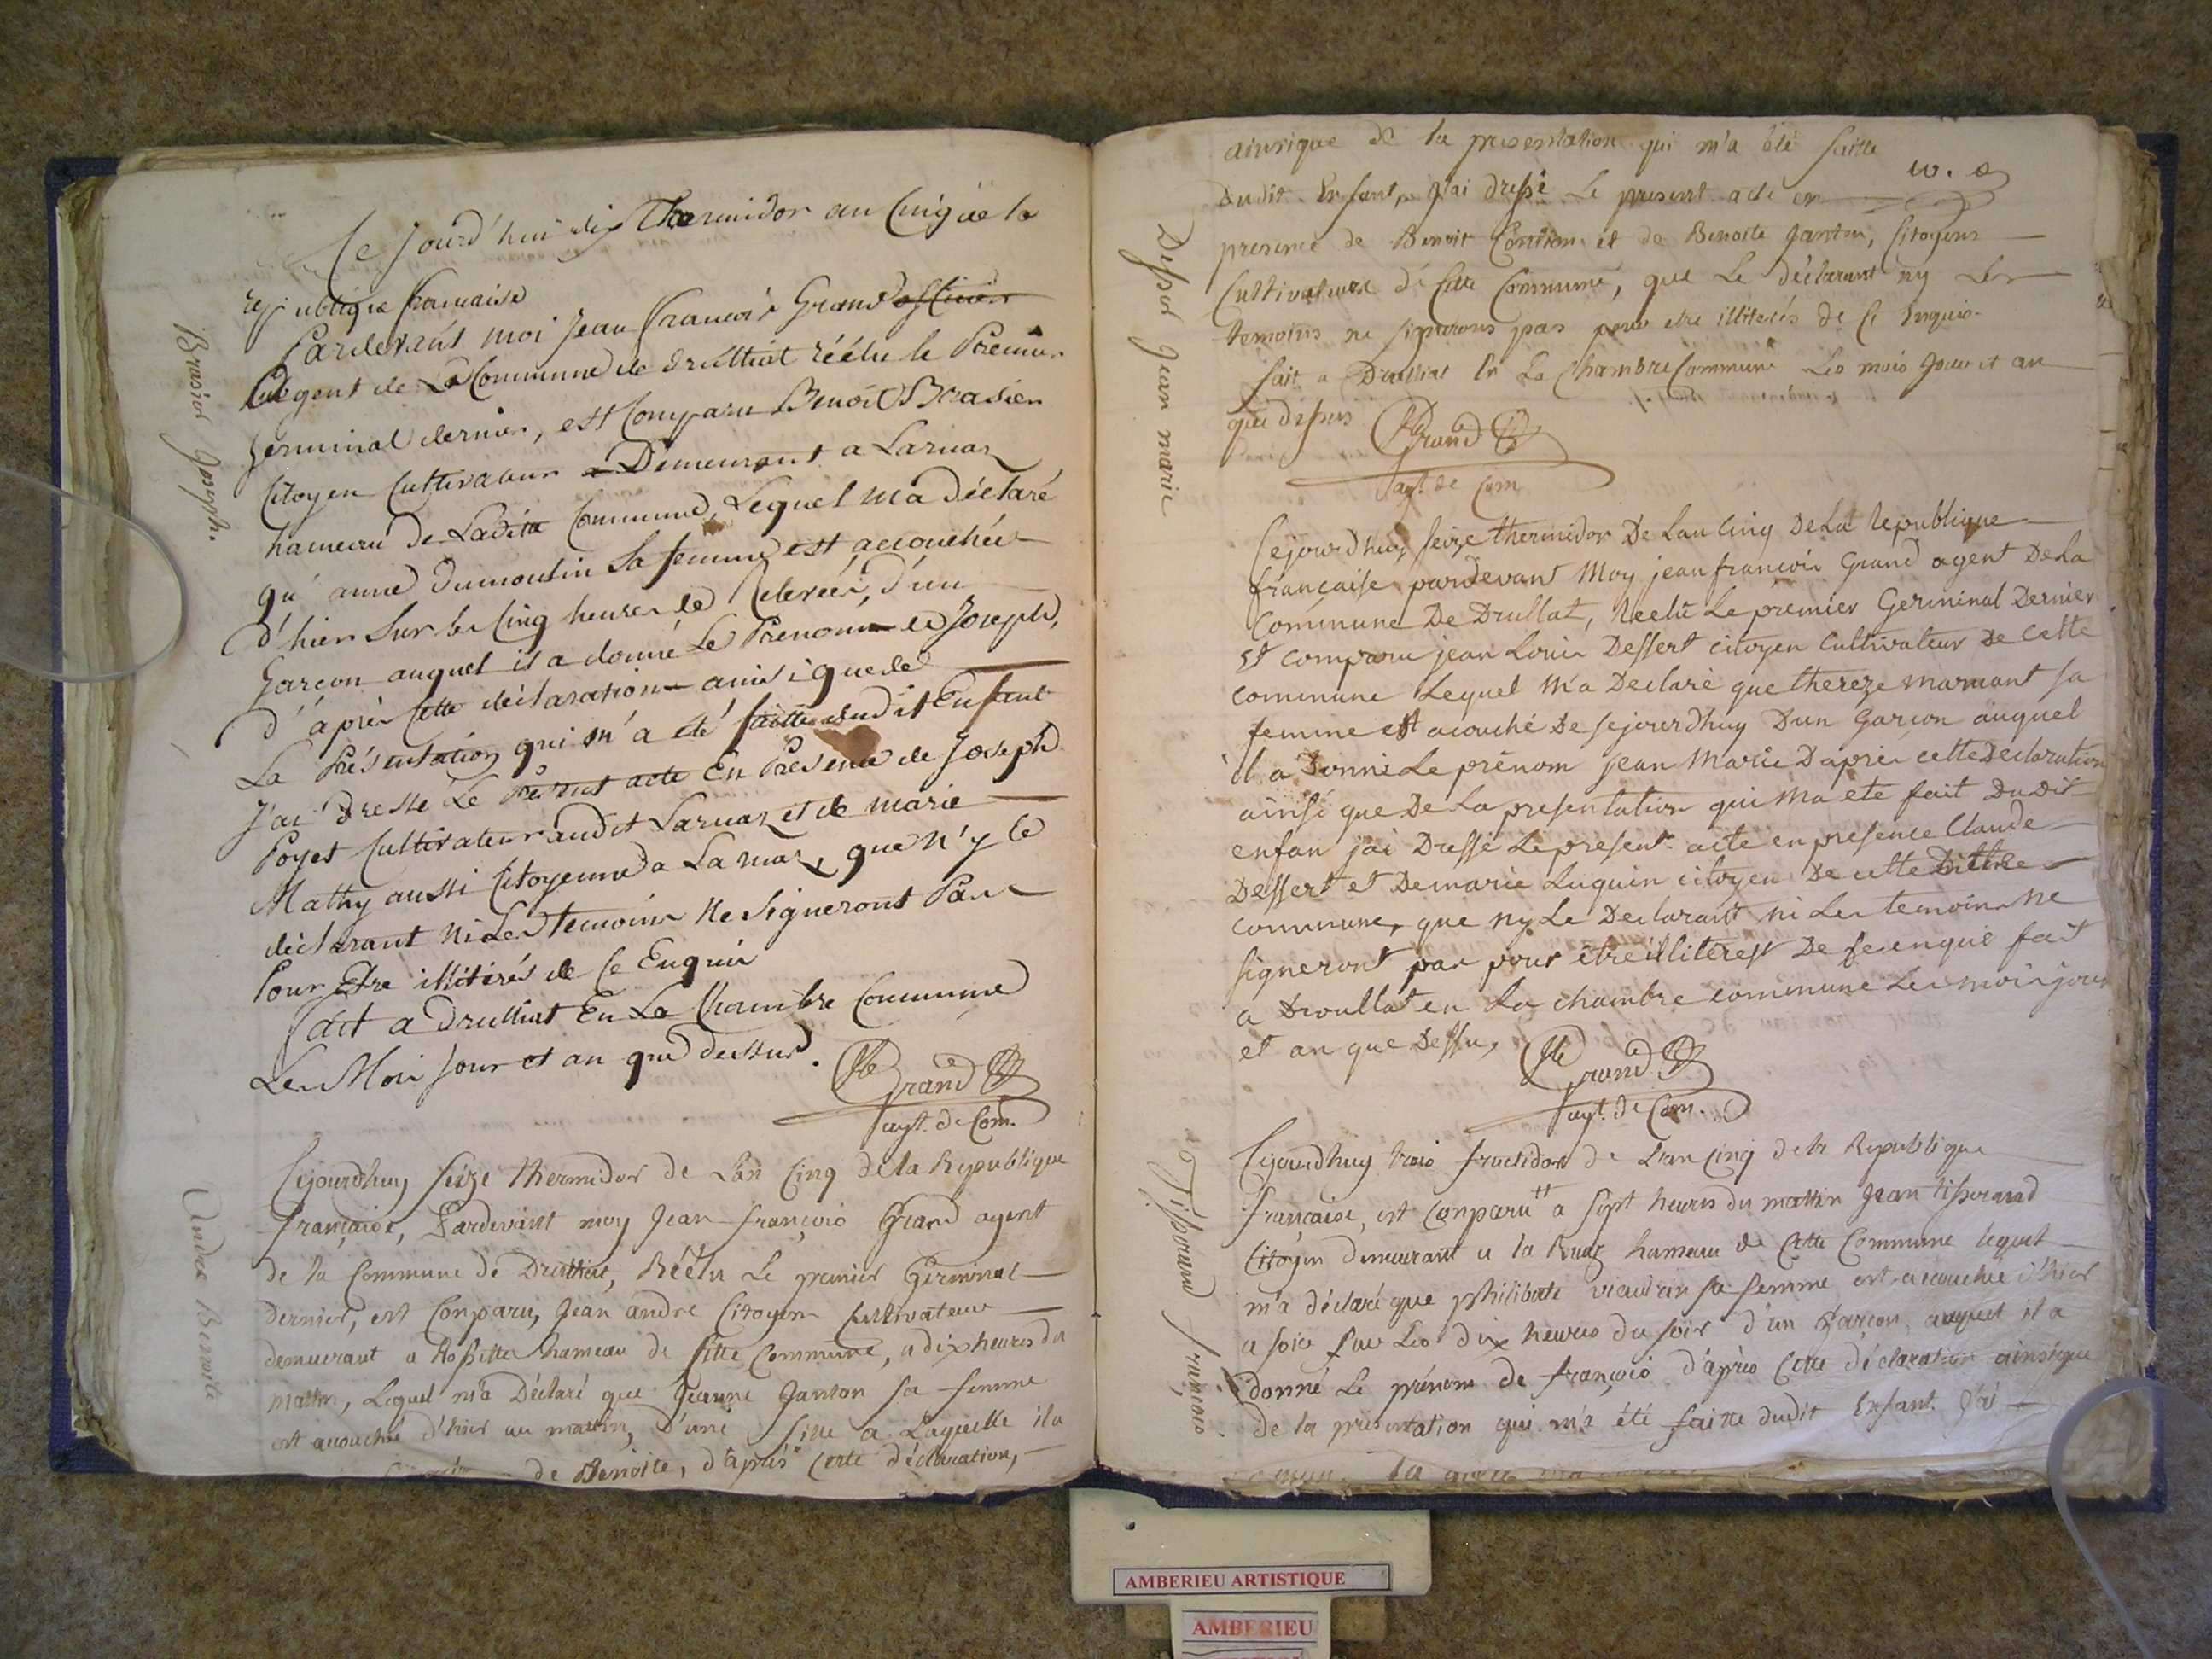 Ce Jourd'hui dix Thermidor an Cinq de la
republique francaise
Pardevant moi Jean francois Grand
agent de La Commune de druillat réélu le Premier
Germinal dernier, est Comparu Benoit Brasier
Citoyen Cultivateur Demeurant a Larnaz
hameau de Ladite Commune, Lequel m'a déclaré
qu'anne dumoulin Sa femme est accouchée
d'hier Sur les Cinq heures de relevée, d'un
Garçon auquel il a donné Le Prenom de Joseph,
d'après Cette déclaration ainsi que de
La Présentation qui m'a été faitte dudit Enfant
J'ai Dressé Le Présent acte En Présence de Joseph
Poyet Cultivateur audit Larnaz et de marie
Mathy aussi Citoyenne a Larnaz, que n'y le
déclarant ni Les temoins Ne Signeront Pas
Pour Etre illitérés de Ce Enquis
fait a druillat En La Chambre Commune
Les Mois Jour et an que dessus.
Grand
agt. de Com.
Brasier Joseph.
Cejourdhuy Seize thermidor de Lan Cinq de la Republique
française, Pardevant moy Jean-françois Grand agent
de la Commune de Druillat, Réélu Le premier Germinal
dernier, est Comparu, Jean andré Citoyen Cultivateur
demeurant a Rossette hameau de Cette Commune, a dix heures du
matin, Lequel m'a Déclaré que Jeanne Janton sa femme
est acouchée d'hier au matin, d'une fille a Laquelle il a
de Benoite, d'après Cette déclaration,
André Benoite
ainsique de la presentation qui m'a été faitte
dudit Enfant, J'ai dressé Le present acte en
presence de Benoit et de Benoite Janton, Citoyens
Cultivateurs de Cette Commune, que Le déclarant ny les
temoins ne signerons pas pour etre illiterés de Ce Enquis.
fait a Druillat En La Chambre Commune Les mois Jour et an
que dessus
Grand
agt. de Com
Dessert Jean marie
Cejourdhuy seize thermidor De Lan Cinq De La Republique
française pardevant Moy jean francois Grand agent De La
Commune De Drullat, Reelü Le premier Germinal Dernier
Et comparu jean Louis Dessert citoyen Cultivateur De Cette
commune Lequel M'a Declaré que thereze mamant sa
femme est acouché De sejourdhuy Dun Garcon auquel
il a Donné Le prénom jean Marie Dapres cette Declaration
ainsi que De La presentation qui Ma ete fait Dudit
enfan jai Dressé Le present acte en presence Claude
Dessert et De marie Luquin citoyen De cette
commune, que ny Le Declarant ni Les temoins Ne
signeront pas pour etre illiterest De se enquie fait
a Droullat en La chambre commune Les mois jour
et an que Dessu,
Grand
agt. de Com.
Cejourdhuy trois fructidor de Lan Cinq de la Republique
française, est Conparu a sept heures du mattin Jean tisserand
Citoyen demeurant a la Ruaz hameau de Cette Commune lequel
m'a déclaré que philiberte viaudrin sa femme est accouchée d'hier
a soir sur Les dix heures du soir d'un Garcon, auquel il a
donné Le prénom de françois d'après Cette déclaration ainsique
de la présentation qui m'a été faitte dudit Enfant. J'ai
Tisserand françois.
AMBERIEU ARTISTIQUE
AMBERIEU